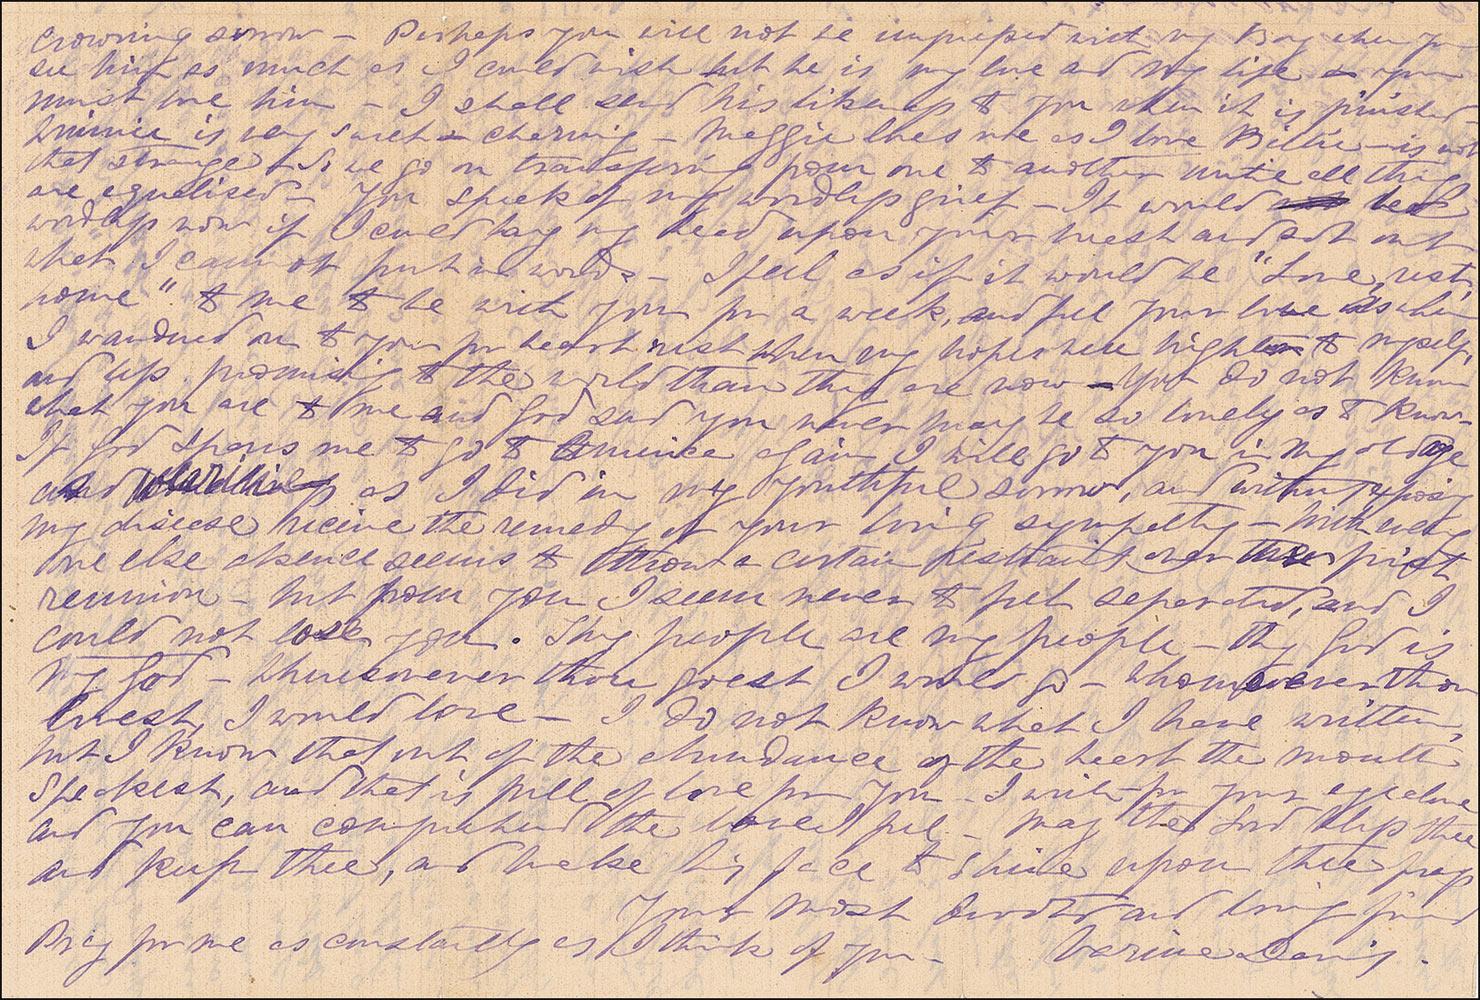 crowning sorrow – Perhaps you will not be impressed with my Boy when you
see him as much as I could wish but he is my love and my life – you
must love him – I shall send his likeness to you when it is finished –
Winnie is very sweet & charming – Maggie loves me as I love Billie – is not
that strange – So we go on transferring from one to another until all things
are equalised – You speak of my wordless grief – It would be
wordless now if I could lay my head upon your breast and sob out
what I cannot put in words – I feel as if it would be "Love, rest,
home" to me to be with you for a week, and feel your love as when
I wandered on to you for heart rest when my hopes were high to myself,
and less promising to the world than they are now – You do not know
what you are to me and God send you never may be so lonely as to know –
If God spares me to go to America again I will go to you in my old age
and as I did in my youthful sorrow, and without exposing
my disease receive the remedy of your loving sympathy – With every
one else absence seems to throw a certain restraint over the first
reunion – but from you I seem never to feel separated, and I
could not lose you. Thy people are my people – thy God is
my God – Wheresoever thou goest I would go – Whomsoever thou
lovest, I would love – I do not know what I have written,
but I know that out of the abundance of the heart the mouth
speaketh, and that is full of love for you – I write for your eye alone
and you can comprehend the love I feel – May the Lord bless thee
and keep thee, and make his face to shine upon thee prays
Your most devoted and loving friend
Pray for me as constantly as I think of you – Varina Davis.